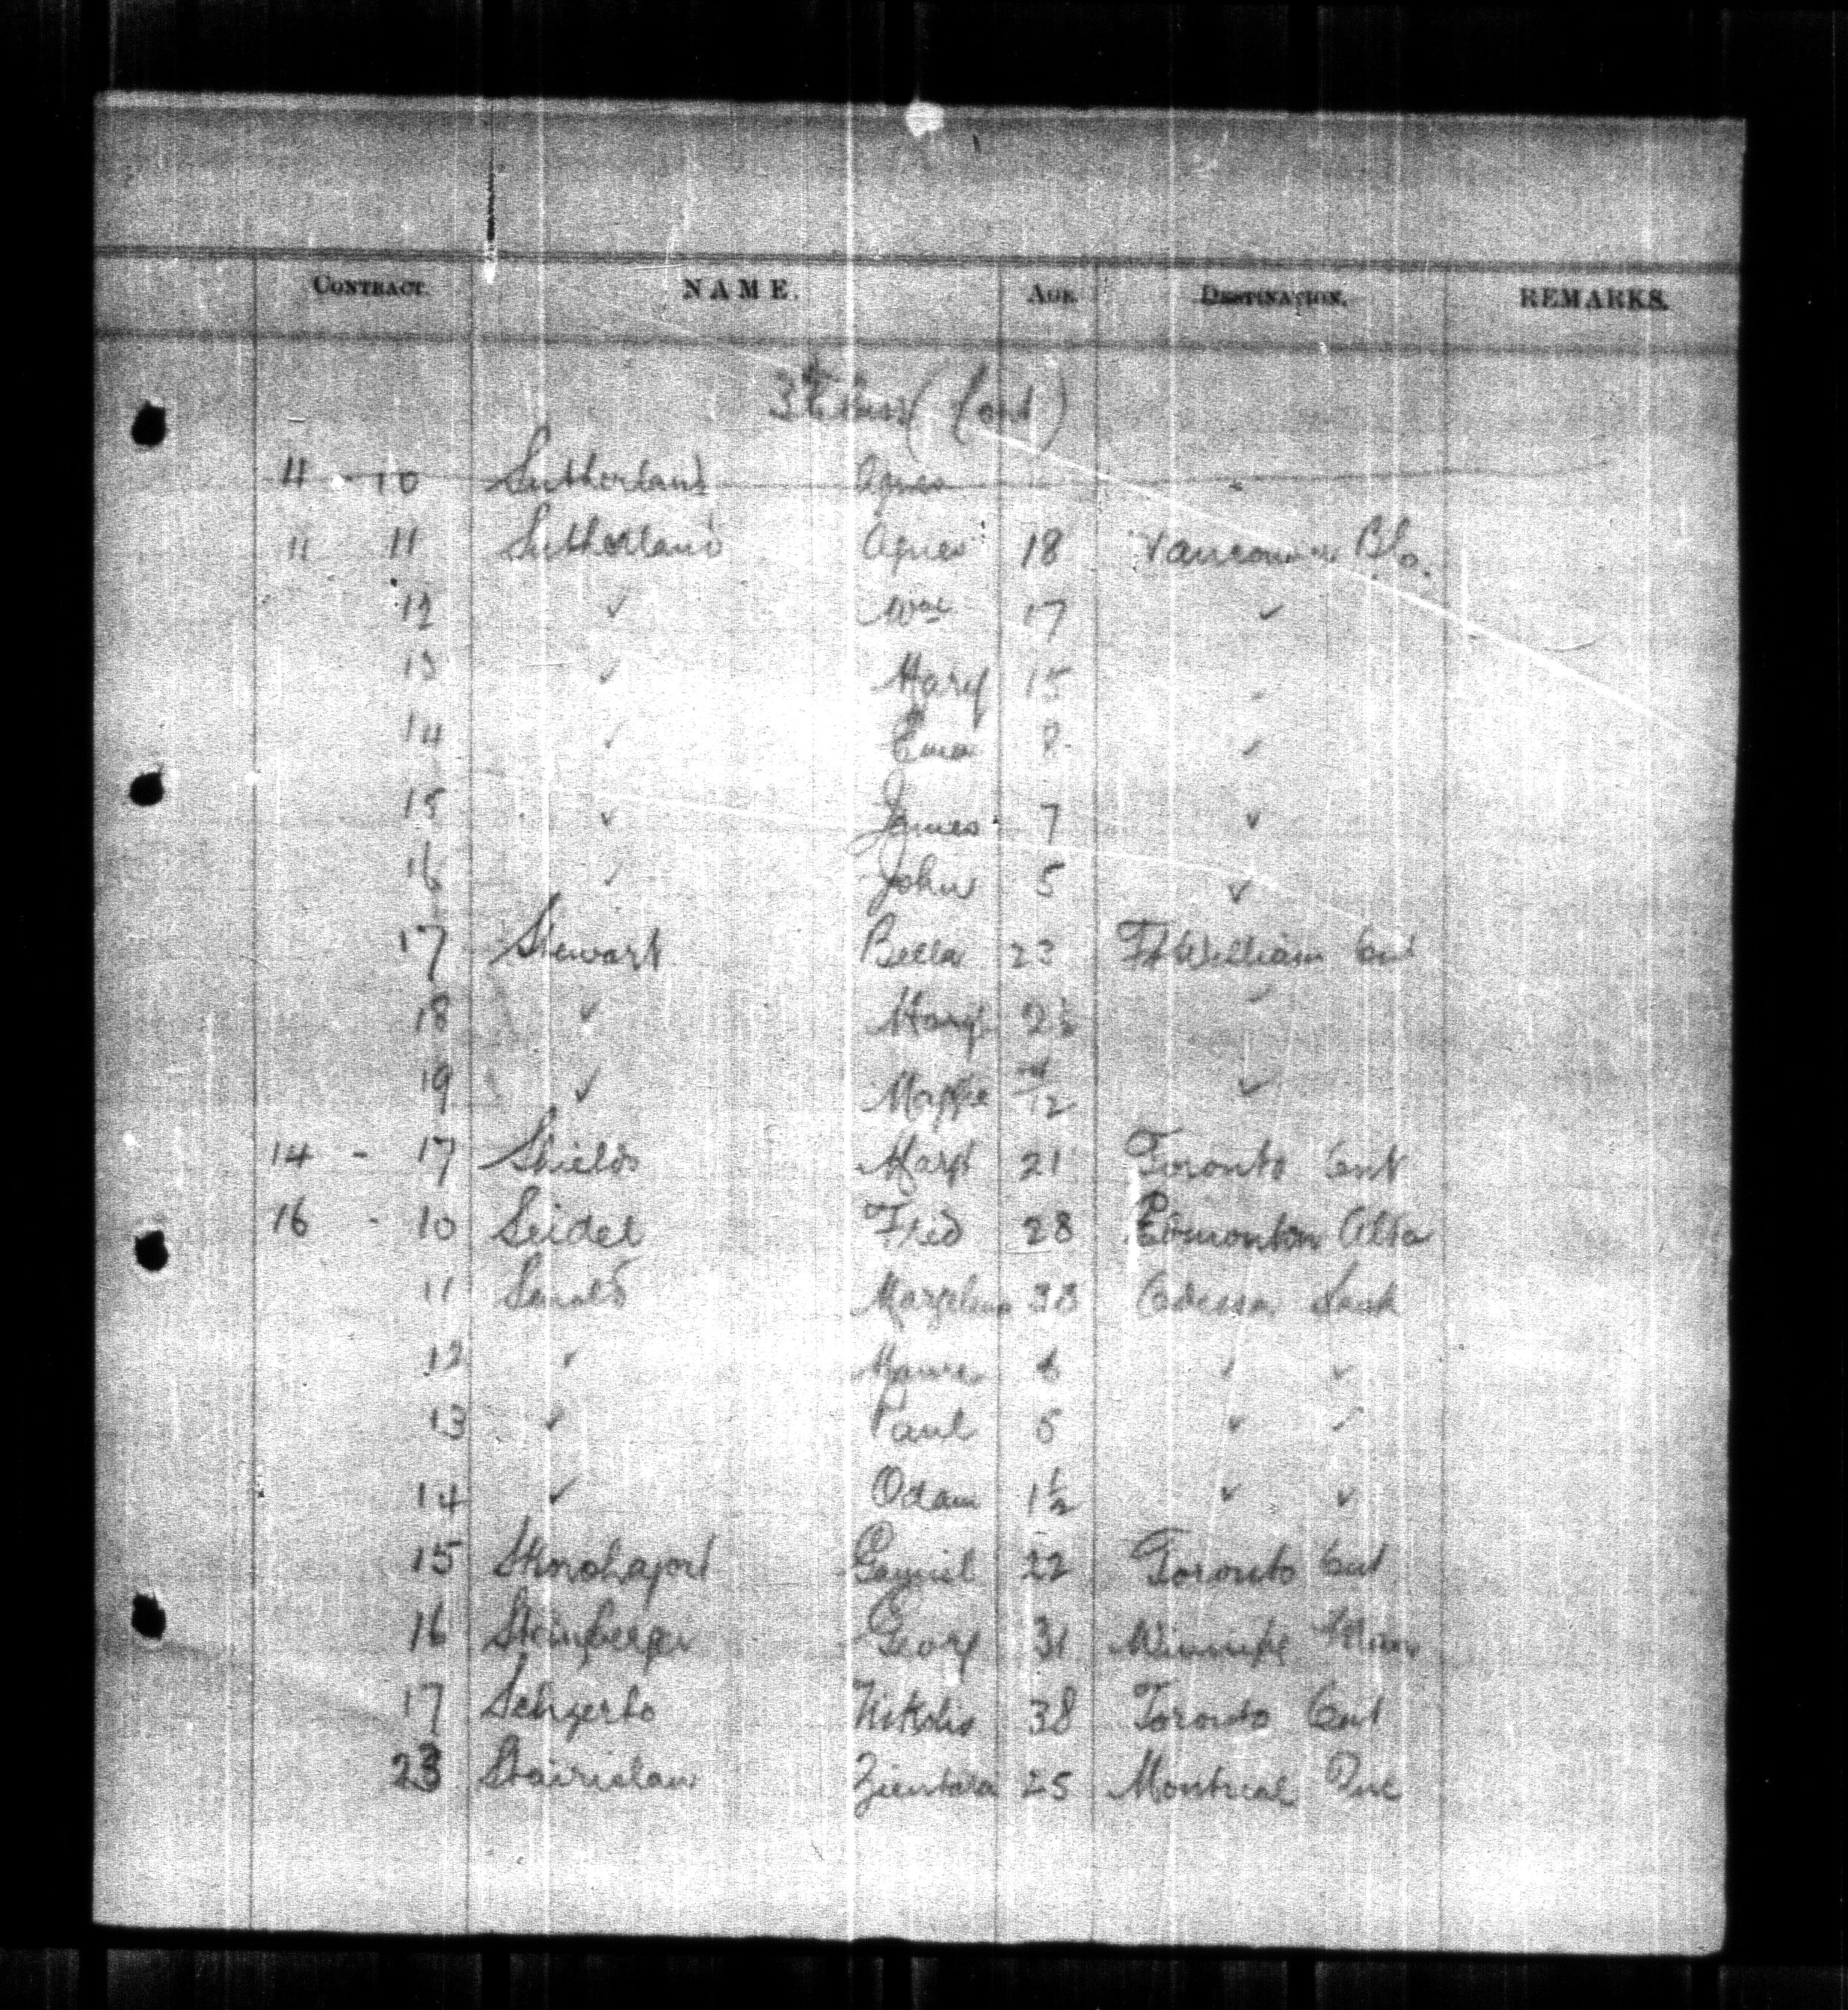 CONTRACT. NAME. AGE. DESTINATION. REMARKS.
3rd Class (Cont)
11 - 10 Sutherland Agnes
11 11 Sutherland Agnes 18 Vancouver B.C.
12 ✓ Wm 17 ✓
13 ✓ Mary 15 ✓
14 ✓ 8 ✓
15 ✓ James 7 ✓
16 ✓ John 5 ✓
17 Stewart Bella 23 Ft William Ont
18 ✓ Mary 2½ ✓
19 ✓ Maggie ✓
14 - 17 Shields Margt 21 Toronto Ont
16 - 10 Seidel Fred 28 Edmonton Alta
11 33 Odessa Sask
12 ✓ 6 ✓ ✓
13 ✓ Paul 5 ✓ ✓
14 ✓ Odam 1½ ✓ ✓
15 22 Toronto Ont
16 Steinberger Georg 31 Man
17 Nikolis 38 Toronto Ont
23 Zientara 25 Montreal Que